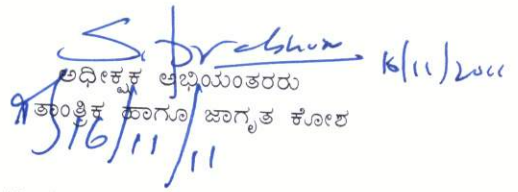 S. Prabhu 16/11/2011
ಅಧೀಕ್ಷಕ ಅಭಿಯಂತರರು
ತಾಂತ್ರಿಕ ಹಾಗೂ ಜಾಗೃತ ಕೋಶ
16/11/11